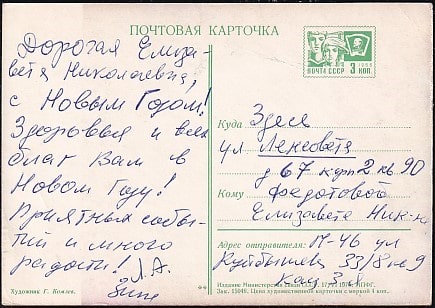 ПОЧТОВАЯ КАРТОЧКА
ПОЧТА СССР 3 КОП.
Дорогая Елиза-
вета Николаевна,
с Новым Годом!
Здоровья и всех
благ Вам в
Новом Году!
Приятных собы-
тий и много
радости!
Художник Г. Комлев.
Куда Здесь
ул Ленсовета
д 67 корп 2 кв 90
Кому Федотовой
Елизавете Ник-не
Адрес отправителя: М-46 ул
Куйбышева 33/8 кв 9
Издание Министерства связи СССР
Цена художественной карточки с маркой 4 коп.